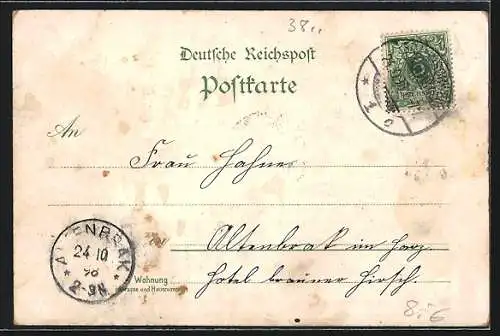 38..
Deutsche Reichspost
Postkarte
An
Frau Hahne
Altenbrak im Harz
Wohnung
(Strasse und Hausnummer)
Hotel brauner Hirsch.
ALTENBRAK
24 10
98
2-3N.
8.6